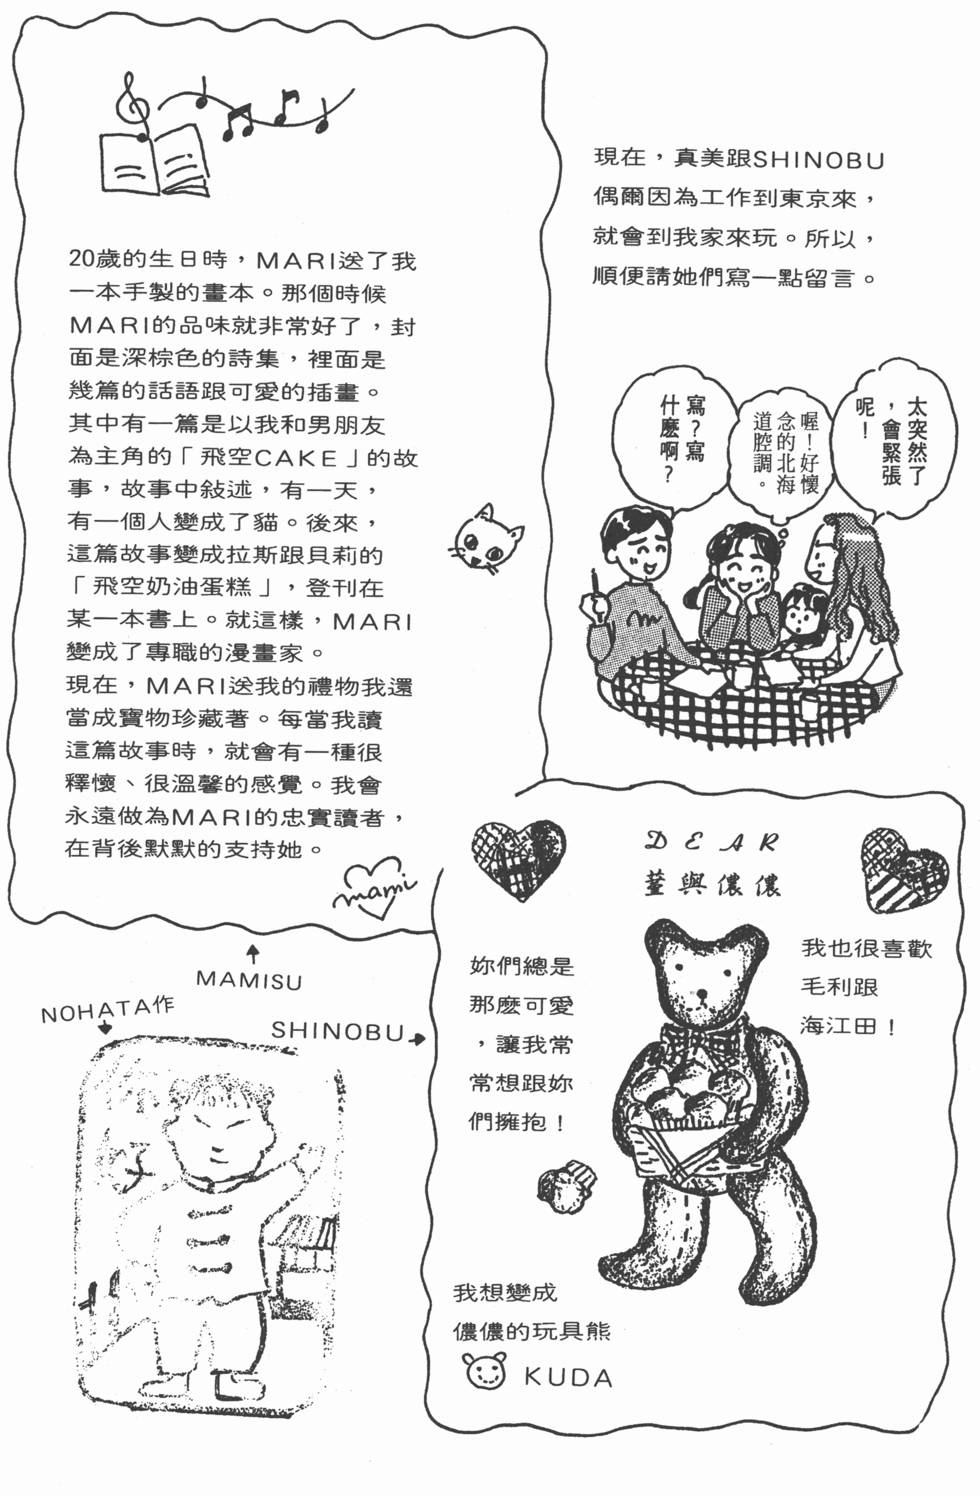 20歲的生日時，MARI送了我
一本手製的畫本。那個時候
MARI的品味就非常好了，封
面是深棕色的詩集，裡面是
幾篇的話語跟可愛的插畫。
其中有一篇是以我和男朋友
為主角的「飛空CAKE」的故
事，故事中敍述，有一天，
有一個人變成了貓。後來，
這篇故事變成拉斯跟貝莉的
「飛空奶油蛋糕」，登刊在
某一本書上。就這樣，MARI
變成了專職的漫畫家。
現在，MARI送我的禮物我還
當成寶物珍藏著。每當我讀
這篇故事時，就會有一種很
釋懷、很溫馨的感覺。我會
永遠做為MARI的忠實讀者，
在背後默默的支持她。
mami
MAMISU
現在，真美跟SHINOBU
偶爾因為工作到東京來，
就會到我家來玩。所以，
順便請她們寫一點留言。
太突然了
，會緊張
呢！
喔！好懷
念的北海
道腔調。
寫？寫
什麼啊？
NOHATA作
SHINOBU
DEAR
菫與儂儂
妳們總是
那麼可愛
，讓我常
常想跟妳
們擁抱！
我也很喜歡
毛利跟
海江田！
我想變成
儂儂的玩具熊
KUDA